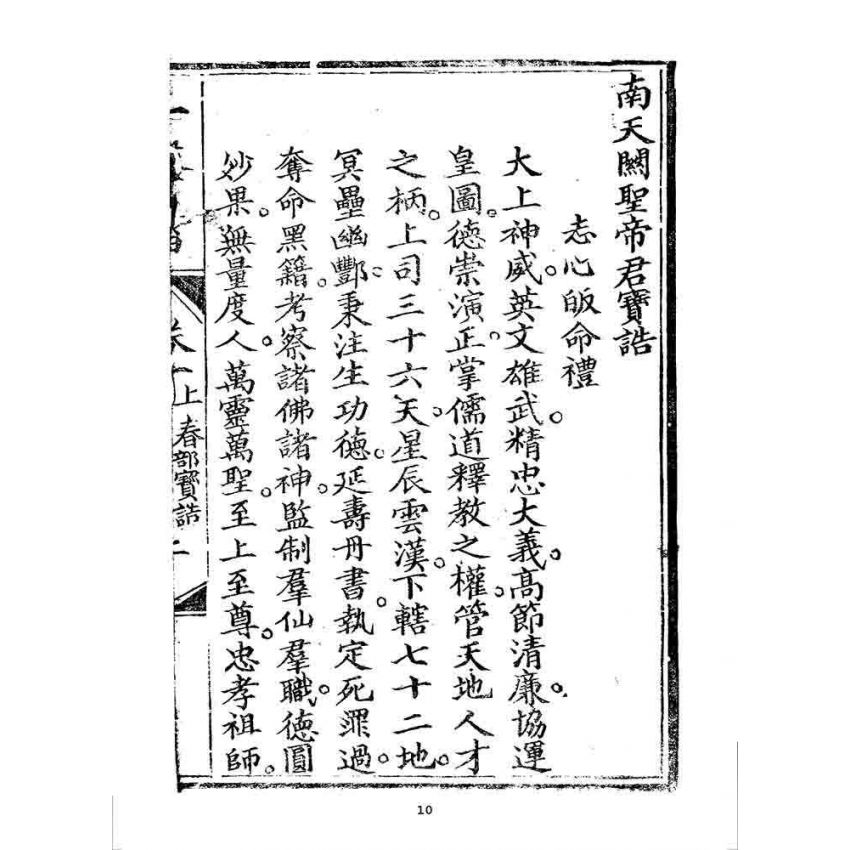 南天闕聖帝君寶誥
志心皈命禮
大上神威。英文雄武。精忠大義。高節清廉。協運
皇圖。德崇演正。掌儒道釋教之權。管天地人才
之柄。上司三十六天。星辰雲漢。下轄七十二地。
冥壘幽酆。秉注生功德。延壽丹書。執定死罪過。
奪命黑籍。考察諸佛諸神。監制羣仙羣職。德圓
妙果。無量度人。萬靈萬聖。至上至尊。忠孝祖師。
上 春部寶誥 二
10